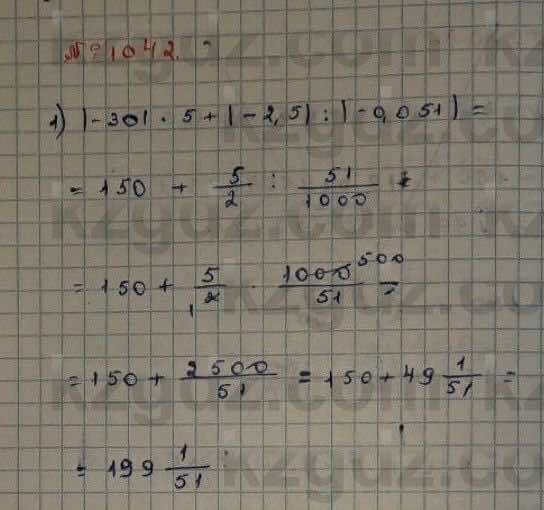 № 1042.
1) |-30| · 5 + |-2,5| : |-0,051| =
= 150 + 5/2 : 51/1000
= 150 + 5/2 · 1000/51 = 1 500
= 150 + 2500/51 = 150 + 49 1/51 =
= 199 1/51
kzguz.com